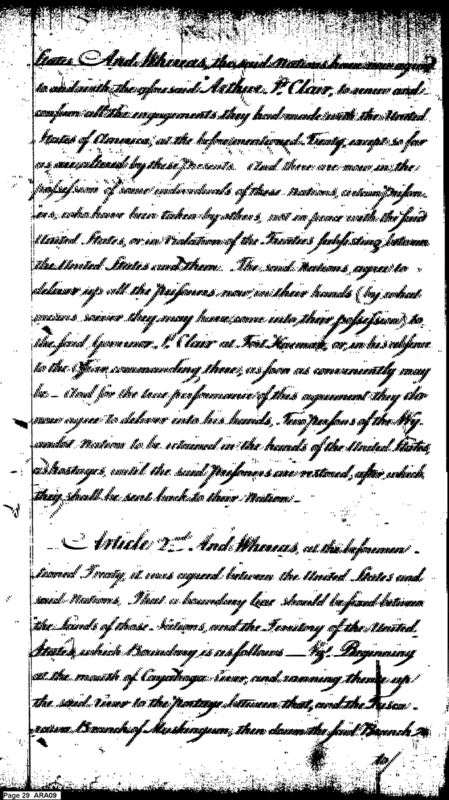 States And Whereas, the said Nations have now agreed
to and with the aforesaid Arthur St. Clair, to renew and
confirm all the engagements they had made with the United
States of America, at the beforementioned Treaty, except so far
as are altered by these presents. And there are now in the
possession of some individuals of these Nations, certain prison-
ers, who have been taken by others, not in peace with the said
United States, or in violation of the Treaties subsisting between
the United States and them. The said Nations agree to
deliver up all the prisoners now in their hands (by what
means soever they may have come into their possession) to
the said Governor St. Clair at Fort Harmar, or, in his absence
to the Officer commanding there, as soon as conveniently may
be — And for the true performance of this agreement they do
now agree to deliver into his hands, Two persons of the Wy-
andot Nation to be retained in the hands of the United States,
as hostages, until the said prisoners are restored, after which
they shall be sent back to their Nation —
Article 2nd And Whereas, at the beforemen-
tioned Treaty, it was agreed between the United States and
said Nations, That a boundary line should be fixed between
the Lands of those Nations, and the Territory of the United
States, which Boundary is as follows — Viz. Beginning
at the mouth of Cayahoga river, and running thence up
the said river to the portage between that, and the Tusca-
rawa Branch of Muskingum, then down the said Branch
to/
Page 29 ARA09